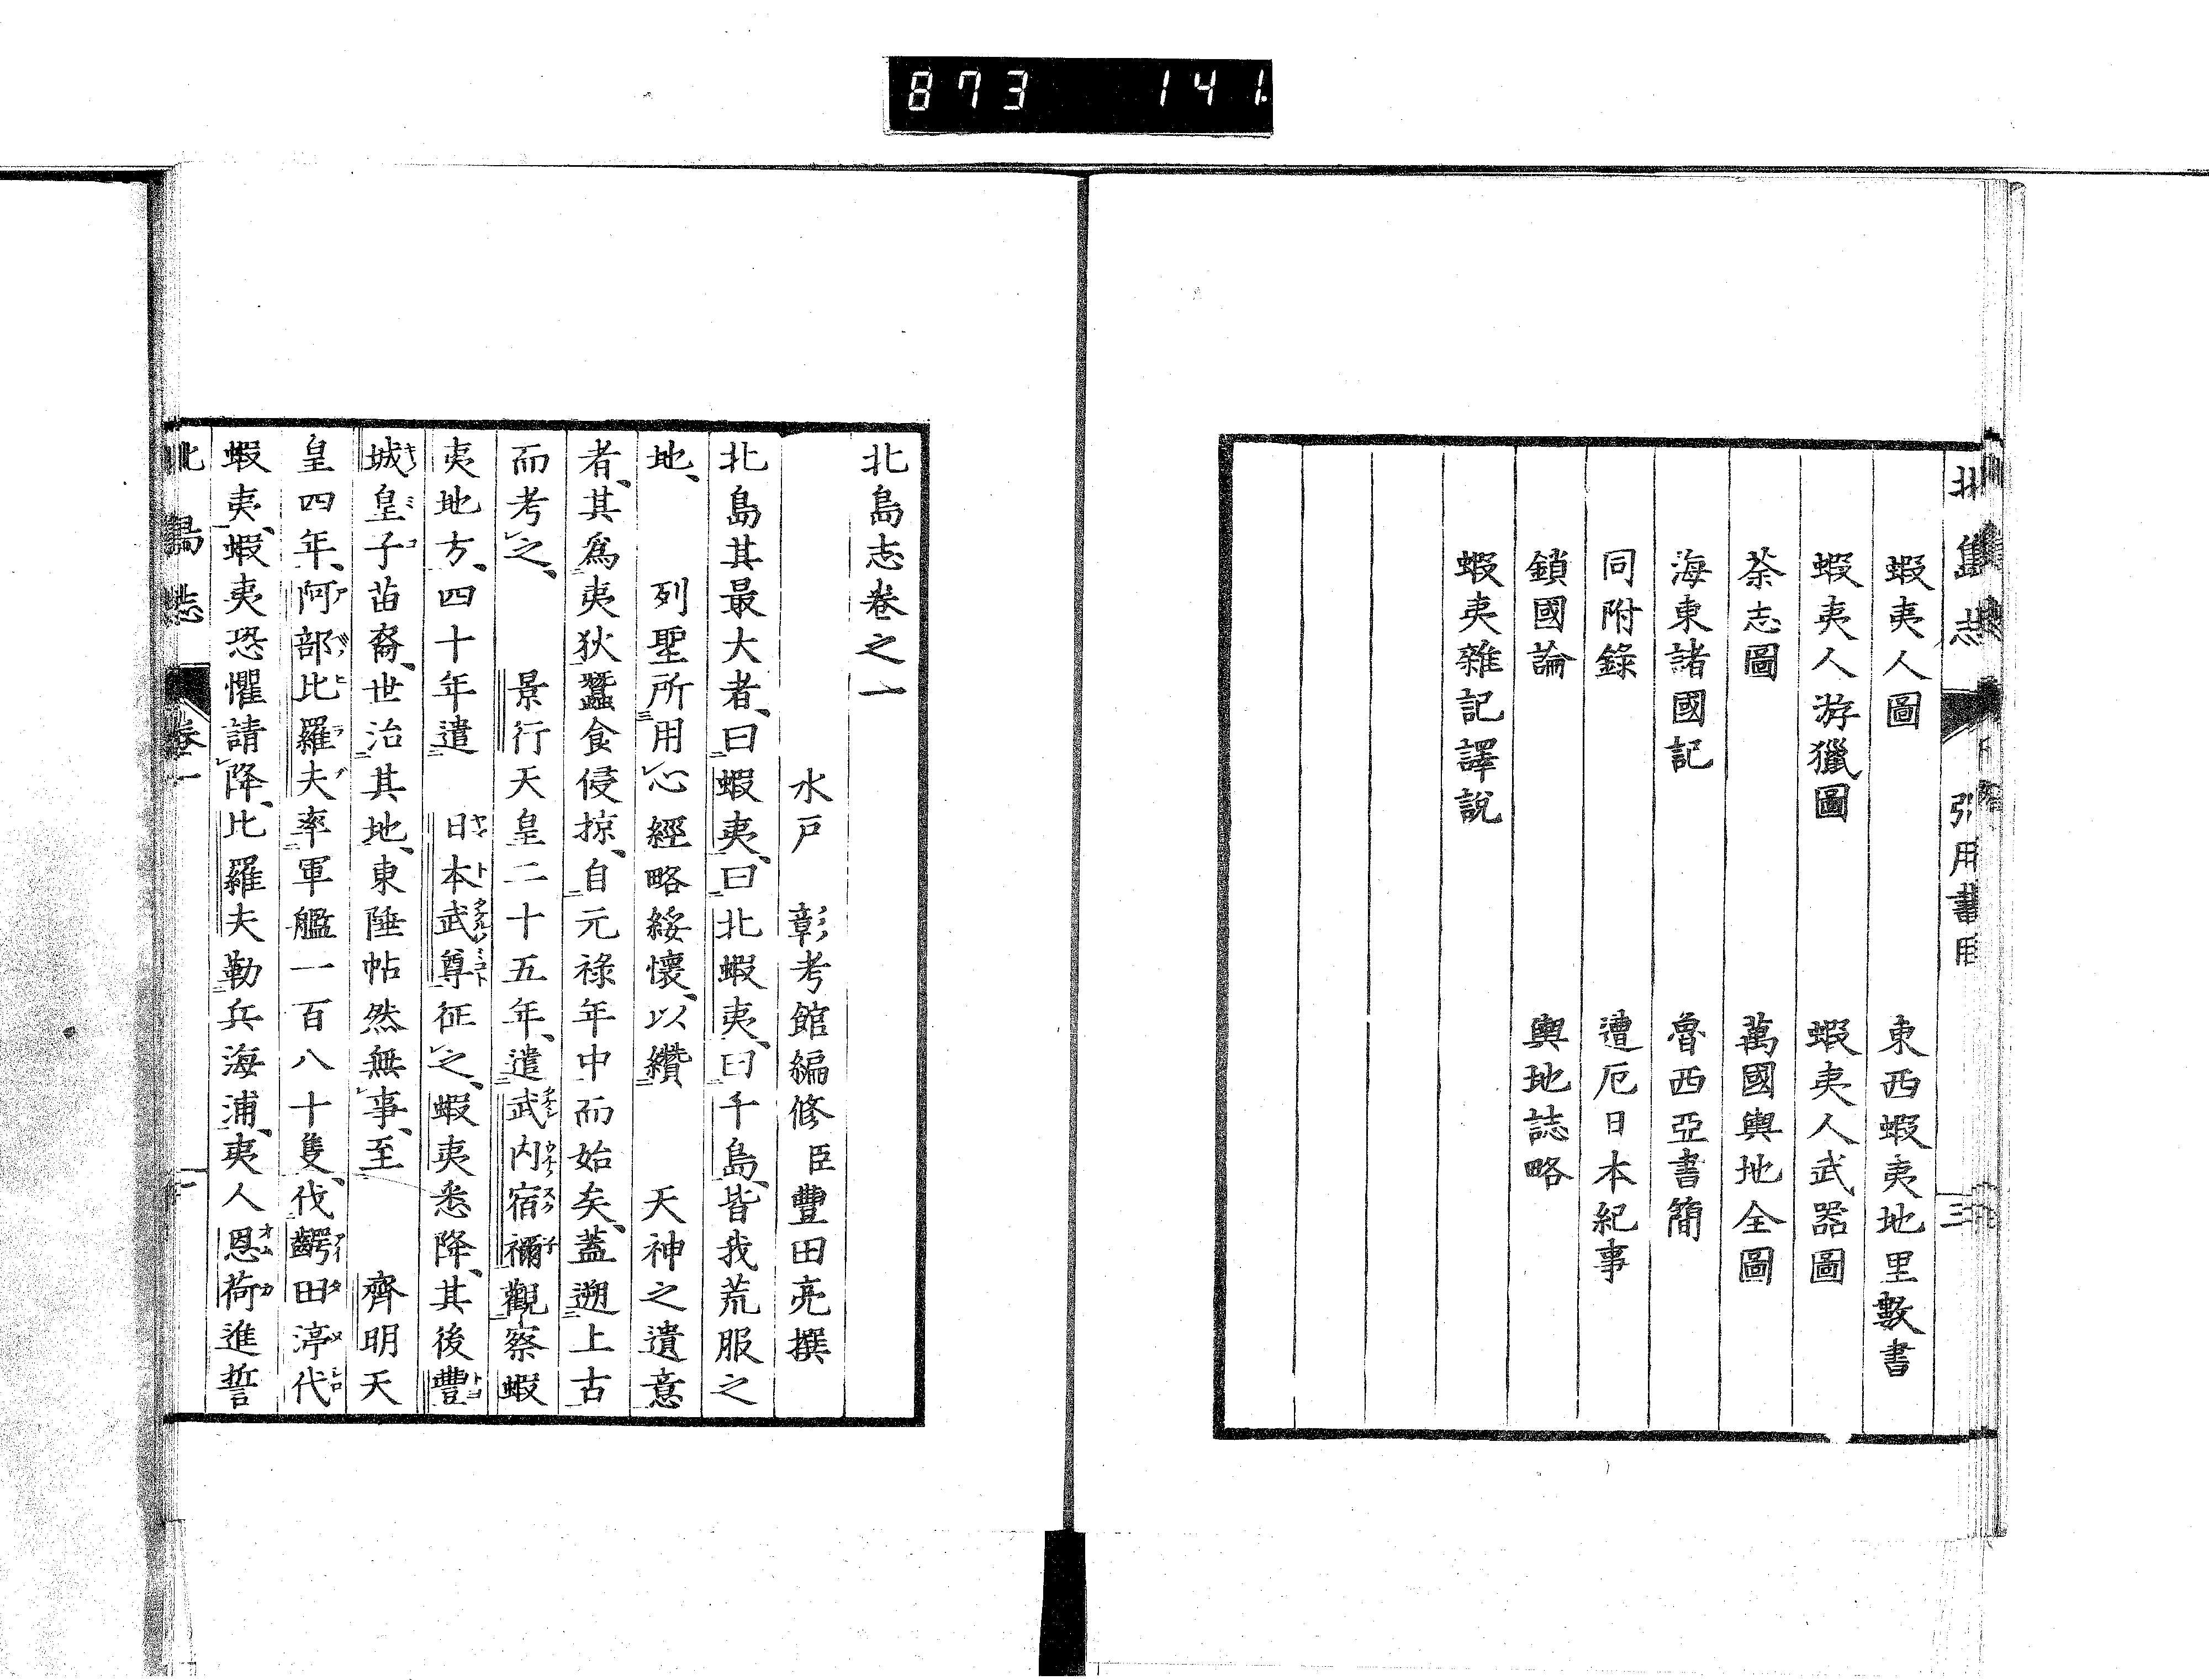 873 141
北島志 引用書目 三
蝦夷人圖 東西蝦夷地里數書
蝦夷人游獵圖 蝦夷人武器圖
荼志圖 萬國輿地全圖
海東諸國記 魯西亞書簡
同附錄 遭厄日本紀事
鎖國論 輿地誌略
蝦夷雜記譯說
北島志卷之一
水戶 彰考館編修臣豐田亮撰
北島其最大者、曰蝦夷、曰北蝦夷、曰千島、皆我荒服之
地、 列聖所用心經略綏懷、以纘 天神之遺意
者、其為夷狄蠶食侵掠、自元祿年中而始矣、蓋遡上古
而考之、 景行天皇二十五年、遣武内宿禰觀察蝦
夷地方、四十年遣 日本武尊征之、蝦夷悉降、其後豐
城皇子苗裔、世治其地、東陲帖然無事、至 齊明天
皇四年、阿部比羅夫率軍艦一百八十隻、伐齶田渟代
蝦夷、蝦夷恐懼請降、比羅夫勒兵海浦、夷人恩荷進誓
北島志 卷一 一